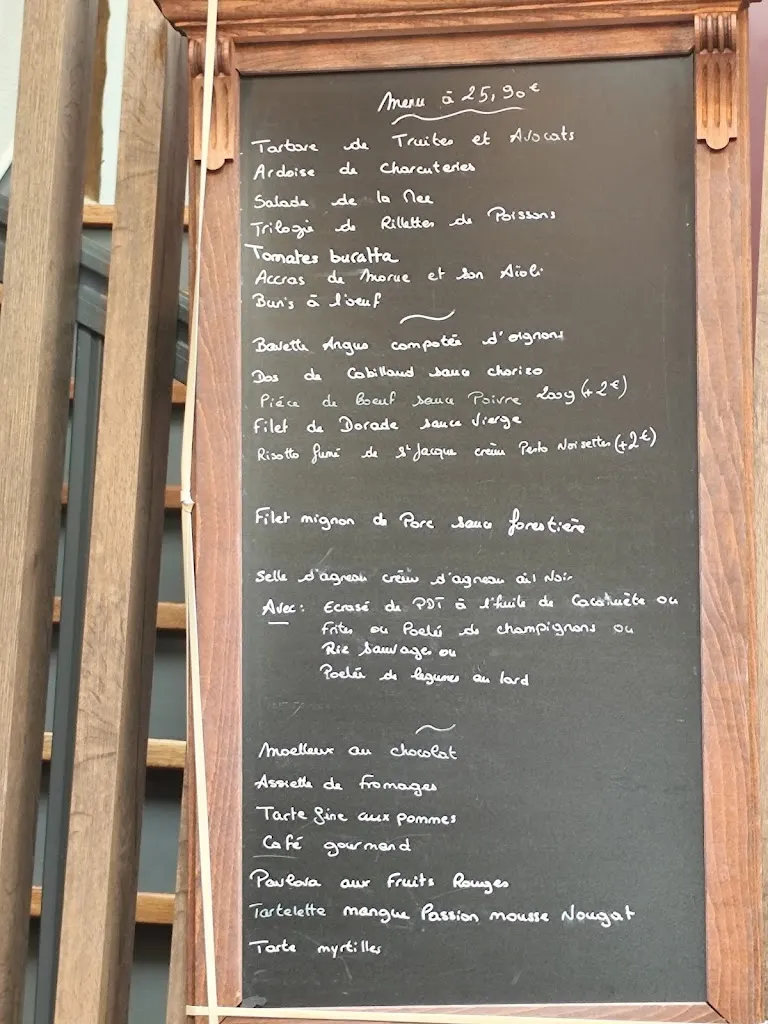 Menu à 25,90€
Tartare de Truites et Avocats
Ardoise de Charcuteries
Salade de la Mer
Trilogie de Rillettes de Poissons
Tomates buratta
Accras de Morue et son Aïoli
Bun's à l'oeuf
Bavette Angus compotée d'oignons
Dos de Cabillaud sauce chorizo
Pièce de boeuf sauce Poivre 200g (+2€)
Filet de Dorade sauce Vierge
Risotto fumé de St Jacque crème Pesto Noisettes (+2€)
Filet mignon de Porc sauce forestière
Selle d'agneau crème d'agneau ail Noir
Avec: Ecrasé de PDT à l'huile de Cacahuète ou
Frites ou Poelée de champignons ou
Riz Sauvage ou
Poelée de légumes au lard
Moelleux au chocolat
Assiette de fromages
Tarte fine aux pommes
Café gourmand
Pavlova aux Fruits Rouges
Tartelette mangue Passion mousse Nougat
Tarte myrtilles